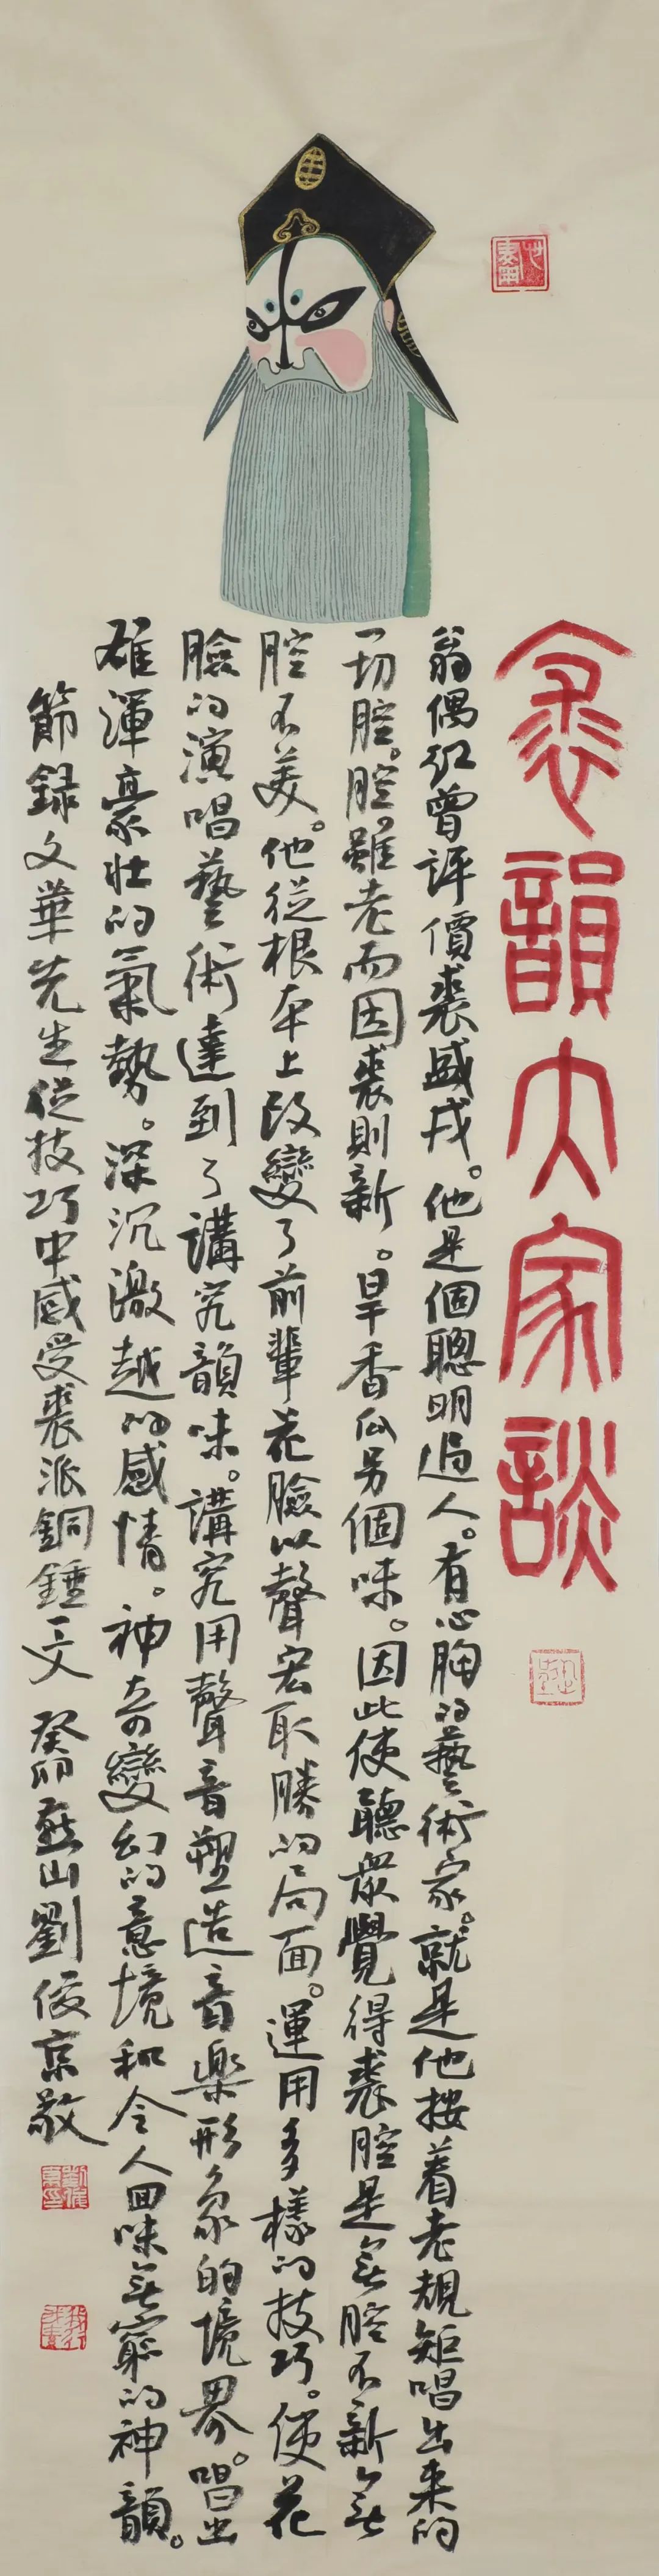 裘韻大家談
翁偶紅曾評價裘盛戎。他是個聰明過人。有心胸的藝術家。就是他按着老規矩唱出来的
一切腔。腔雖老而因裘則新。旱香瓜另個味。因此使聽衆覺得裘腔是無腔不新無
腔不美。他從根本上改變了前輩花臉以聲宏取勝的局面。運用多樣的技巧。使花
臉的演唱藝術達到了講究韻味。講究用聲音塑造音樂形象的境界。唱出
雄渾豪壯的氣勢。深沉激越的感情。神奇變幻的意境和令人回味無窮的神韻。
節録文華先生從技巧中感受裘派銅錘一文 癸卯燕山劉俊京敬